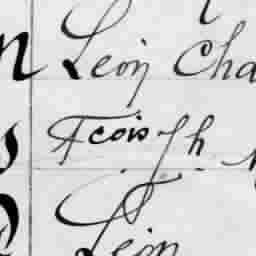 n Léon Cha
s Fcois Jh
Léon